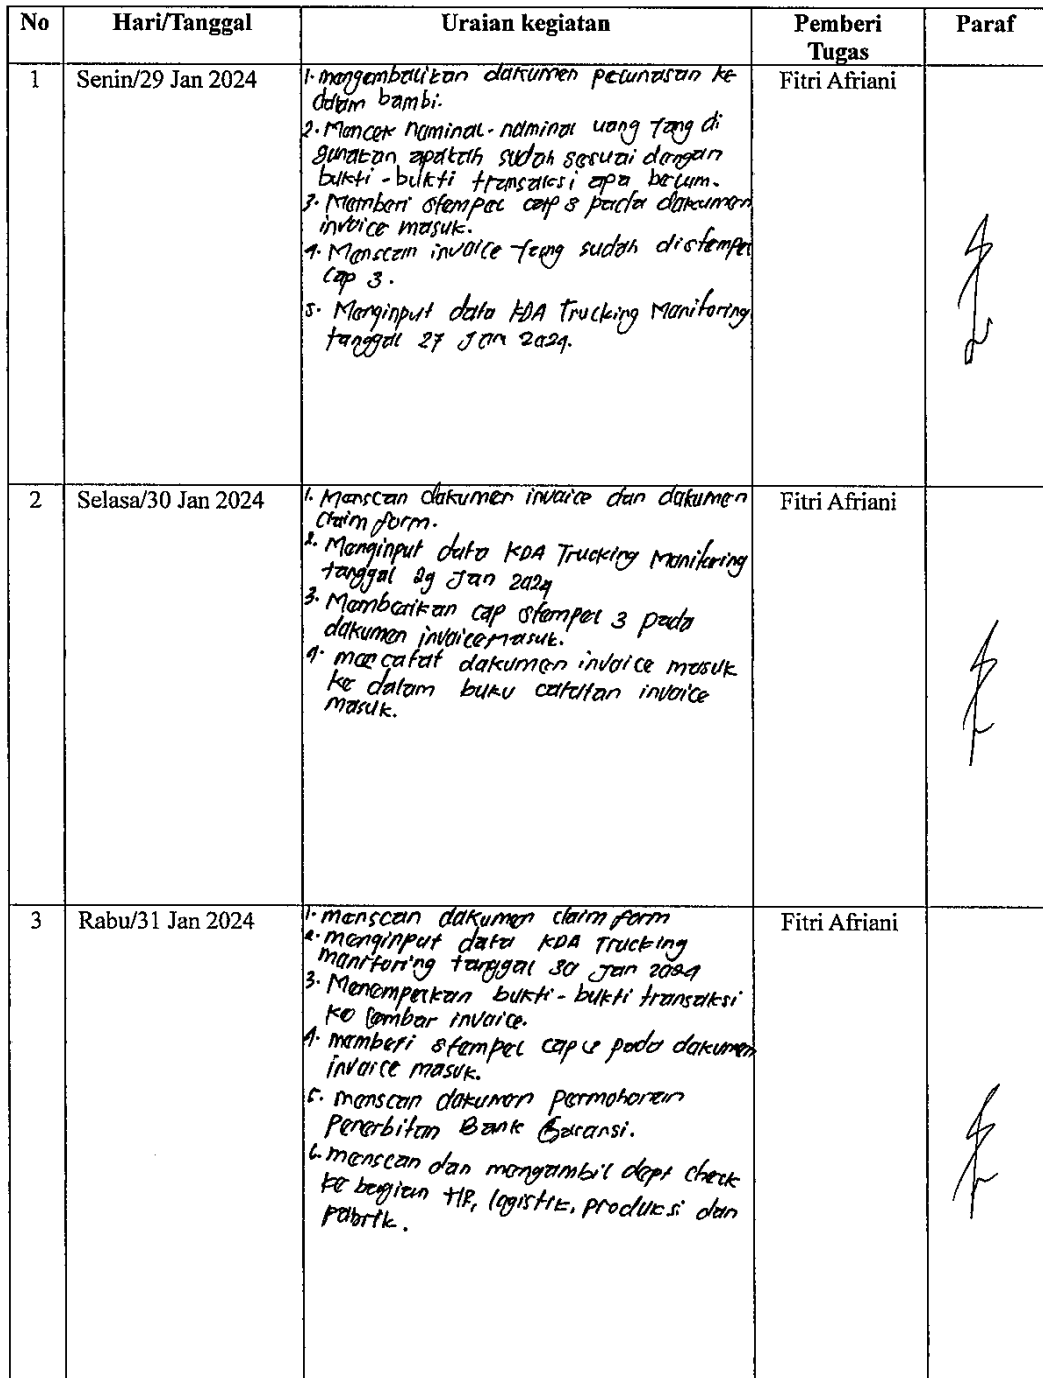 No Hari/Tanggal Uraian kegiatan Pemberi Tugas Paraf
1 Senin/29 Jan 2024 Fitri Afriani
1. mengembalikan dokumen pelunasan ke
dalam bambi.
2. Mencek nominal-nominal uang yang di
gunakan apakah sudah sesuai dengan
bukti-bukti transaksi apa belum.
3. Memberi stempel cap 3 pada dokumen
invoice masuk.
4. Menscan invoice yang sudah distempel
cap 3.
5. Menginput data KDA Trucking Monitoring
tanggal 27 Jan 2024.
2 Selasa/30 Jan 2024 Fitri Afriani
1. Menscan dokumen invoice dan dokumen
claim form.
2. Menginput data KDA Trucking Monitoring
tanggal 29 Jan 2024
3. Memberikan cap stempel 3 pada
dokumen invoice masuk.
4. mencatat dokumen invoice masuk
ke dalam buku catatan invoice
masuk.
3 Rabu/31 Jan 2024 Fitri Afriani
1. menscan dokumen claim form
2. menginput data KDA Trucking
monitoring tanggal 30 Jan 2024
3. Menempelkan bukti-bukti transaksi
ke lembar invoice.
4. memberi stempel cap pada dokumen
invoice masuk.
5. menscan dokumen Permohonan
Penerbitan Bank Garansi.
6. menscan dan mengambil dept check
ke bagian HR, logistik, produksi dan
pabrik.